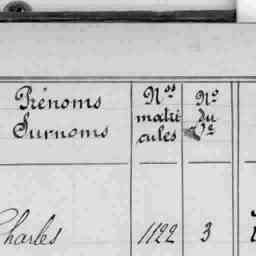 Prénoms
Surnoms
Nos
matri
cules
No
du
Charles
1122
3